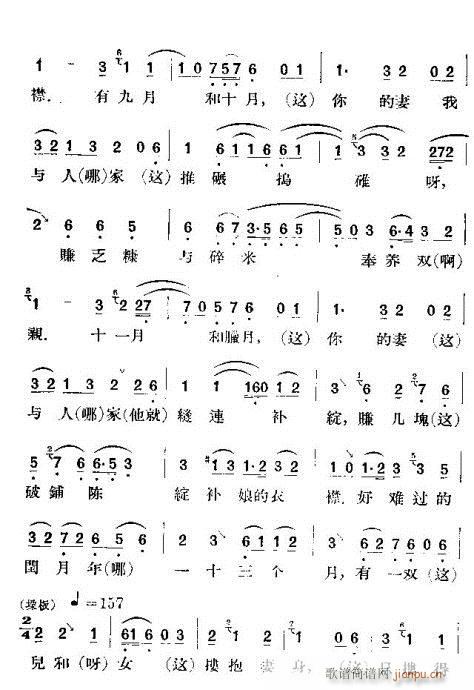 1 - 3 1 1 | 1 0 7 5 7 6 0 1 | 1· 3 2 0 2 |
襟. 有九月 和十月,(这)你的妻我
3 2 1 3 2 0 6 | 1 6 0 1 2 0 6·1 | 3 3 2 2 7 2 |
与人(哪)家(这)推碾捣碓呀,
2 6 6 5 | 6 6 3·5 6 5 | 5 0 3 6·4 3 2 |
賺乏糠与碎米 奉养双(啊)
1 - 3 2 2 7 | 7 0 5 7 6 0 1 | 1· 3 2 0 2 |
親. 十一月 和臘月,(这)你的妻(这)
3 2 1 3 2 2 6 | 1 1 6 0 1 2 | 3 6 2 7 6 |
与人(哪)家(他就)縫連补綻,賺几塊(这)
5 7 6 6·5 3 | 3 1 3 1·2 3 2 | 1 0 1· 3 3 5 |
破鋪陈 綻补娘的衣襟.好难过的
3 2 7 2 6 0 6 | 1 2 3 3 | 3 6 2 7 6 0 6 |
閏月年(哪)一十三个月,有一双(这)
(垛板) ♩=157
2/4 2 2 1 | 6 1 6 0 3 | 2 2 1
兒和(呀)女(这)摟抱妻身,
歌谱简谱网
jianpu.cn